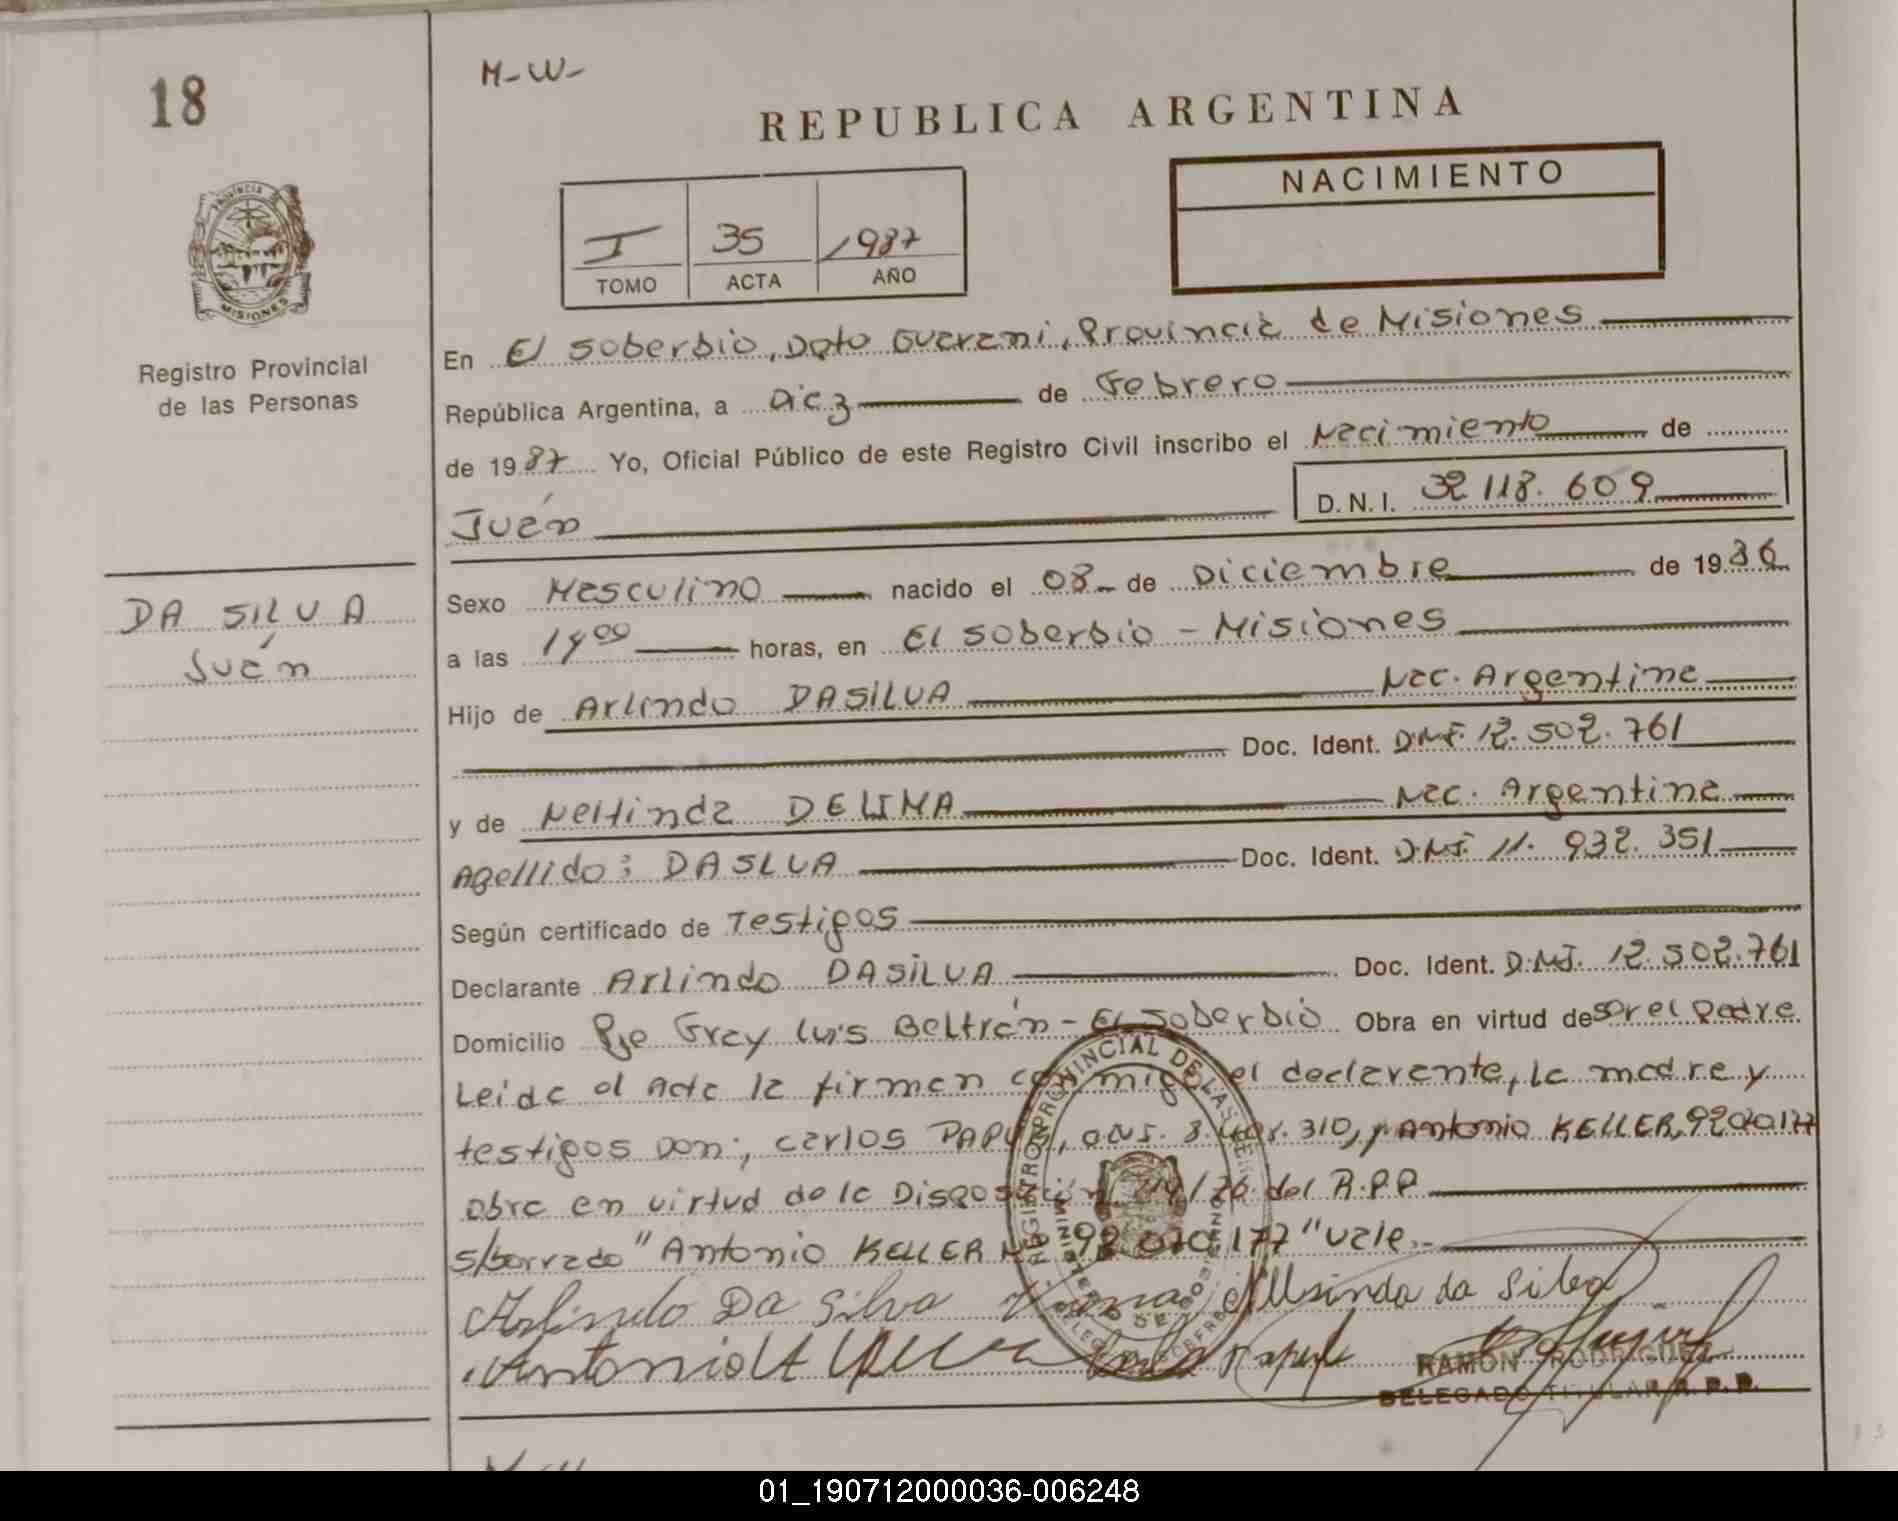 18
M-W-
REPUBLICA ARGENTINA
NACIMIENTO
I 35 1987
TOMO ACTA AÑO
PROVINCIA DE
MISIONES
Registro Provincial
de las Personas
En El Soberbio, Dpto Guarani, Provincia de Misiones
República Argentina, a Diez de Febrero
de 1987 Yo, Oficial Público de este Registro Civil inscribo el Nacimiento de
Juán D.N.I. 32 118. 609
DA SILVA
Juán
Sexo Masculino nacido el 08 de Diciembre de 1986
a las 19 00 horas, en El Soberbio - Misiones
Hijo de Arlindo DASILVA Nac. Argentina
Doc. Ident. D.N.I. 12.502.761
y de Neltinda DELIMA Nac. Argentina
Apellido: DASLVA Doc. Ident. D.N.I. 11. 932. 351
Según certificado de Testigos
Declarante Arlindo DASILVA Doc. Ident. D.N.I. 12.502.761
Domicilio Pje Fray Luis Beltrán - El Soberbio Obra en virtud de Ser el padre
Leida el Acta la firman conmigo el declarante, la madre y
testigos Don; Carlos 310, y Antonio KELLER,
obra en virtud de la Disposición del R.P.P
s/borrado "Antonio KELLER 92 070.177" vale.-
REGISTRO PROVINCIAL DE LAS PERSONAS
Arlindo Da Silva da Silva
Antonio
RAMON RODRIGUEZ
DELEGADO TITULAR R.P.P.
01_190712000036-006248